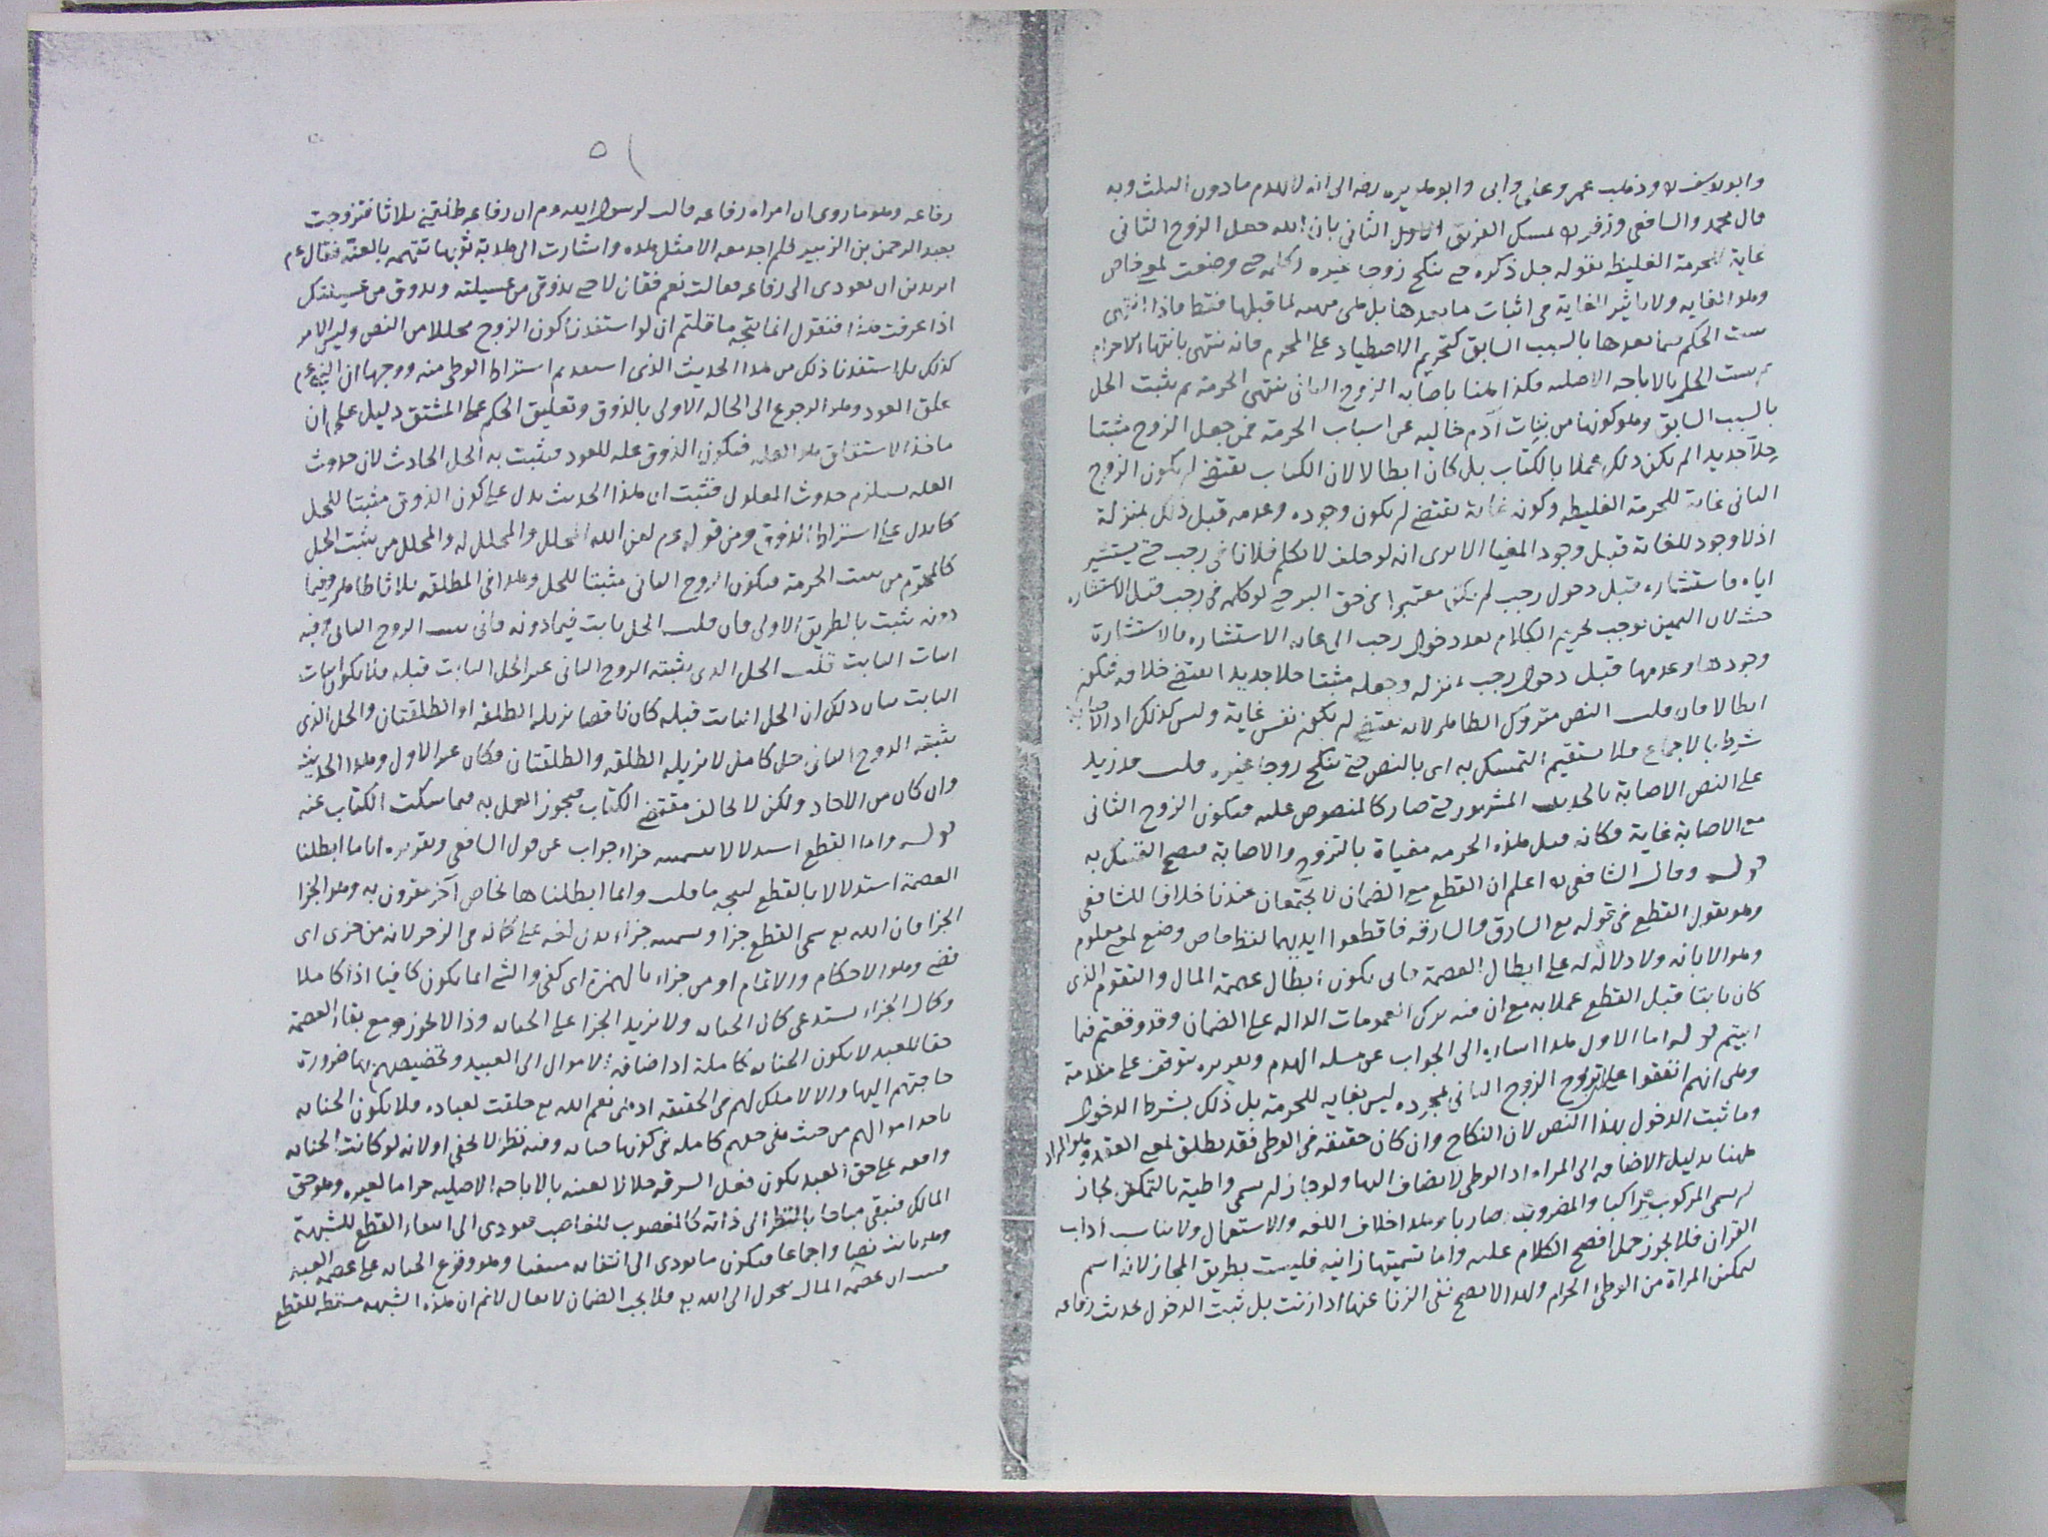 وابو يوسف لا وذهب عمر وعلى وابى وابو هريره رضه الى انه لا يهدم ما دون الثلث وبه
قال محمد والشافعى وزفر له تمسك الفريق الثانى بان الله جعل الزوج الثانى
غاية للحرمة الغليظه بقوله جل ذكره حتى تنكح زوجا غيره وكلمه حتى وضعت لمعنى خاص
وهو الغايه ولا تاثير للغاية فى اثبات ما بعدها بل هى منهيه لما قبلها فقط فاذا انتهى
يثبت الحكم فيما بعدها بالسبب السابق كتحريم الاصطياد على المحرم فانه ينتهى بانتهاء الاحرام
ثم يثبت الحل بالاباحه الاصليه فكذا ههنا باصابه الزوج الثانى تنتهى الحرمة ثم يثبت الحل
بالسبب السابق وهو كونها من بنات آدم خاليه عن اسباب الحرمة فمن جعل الزوج مثبتا
حِلّا جديدا لم يكن ذلك عملا بالكتاب بل كان ابطالا لان الكتاب يقتضى ان يكون الزوج
الثانى غاية للحرمة الغليظه وكونه غاية يقتضى ان يكون وجوده وعدمه قبل ذلك بمنزلة
اذ لا وجود للغاية قبل وجود المغيا الا يرى انه لو حلف لا يكلم فلانا فى رجب حتى يستشير
اياه فاستشاره قبل دخول رجب لم يكن معتبرا فى حق البر حتى لو كلمه فى رجب قبل الاستشاره
حنث لان اليمين توجب تحريم الكلام بعد دخول رجب الى غايه الاستشاره فالاستشارة
وجودها وعدمها قبل دخول رجب بمنزله وجعله مثبتا حلا جديدا يقتضى خلافه فيكون
ابطالا فان قلت النص متروك الظاهر لانه يقتضى ان يكون نفس غاية وليس كذلك اذ الاصابة
شرط بالاجماع فلا يستقيم التمسك به اى بالنص حتى تنكح زوجا غيره قلت قد زيد
على النص الاصابة بالحديث المشهور حتى صار كالمنصوص عليه فيكون الزوج الثانى
مع الاصابة غاية فكانه قيل هذه الحرمه مغياة بالتزوج والاصابة فيصح التمسك به
قوله وقال الشافعى له اعلم ان القطع مع الضمان لا يجتمعان عندنا خلافا للشافعى
وهو يقول القطع فى قوله تع السارق والسارقه فاقطعوا ايديهما لفظ خاص وضع لمعنى معلوم
وهو الابانه ولا دلالة له على ابطال العصمة فانى يكون ابطال عصمة المال والتقوم الذى
كان ثابتا قبل القطع عملا به مع ان فيه ترك العمومات الداله على الضمان وقد وقعتم فيما
ابيتم قوله اما الاول هذا اشاره الى الجواب عن مسله الهدم وتقريره يتوقف على مقدمة
وهى انهم اتفقوا على ان تزوج الزوج الثانى بمجرده ليس بغايه للحرمة بل ذلك بشرط الدخول
وما ثبت الدخول بهذا النص لان النكاح وان كان حقيقه فى الوطى فقد يطلق لمعنى العقد وهو المراد
ههنا بدليل الاضافه الى المراه اذ الوطى لا يضاف اليها ولو جاز ان يسمى واطية بالتمكين لجاز
ان يسمى المركوب راكبا والمضروب ضاربا وهذا خلاف اللغه والاستعمال ولا يناسب اداب
القران فلا يجوز حمل افصح الكلام عليه واما تسميتها زانيه فليست بطريق المجاز لانه اسم
لتمكين المراة من الوطئ الحرام ولهذا لا يصح نفى الزنا عنها اذا زنت بل ثبت الدخول بحديث رفاعه
٥١
رفاعه وهو ما روى ان امراه رفاعه قالت لرسول الله عم ان رفاعه طلقنى ثلاثا فتزوجت
بعبد الرحمن بن الزبير فلم اجد معه الا مثل هذه واشارت الى هدبة ثوبها تتهمه بالعنة فقال عم
اتريدين ان تعودى الى رفاعه فقالت نعم فقال لا حتى تذوقى من عسيلته ويذوق من عسيلتك
اذا عرفت هذا فنقول انما يتجه ما قلتم ان لو استفدنا كون الزوج محللا من النص وليس الامر
كذلك بل استفدنا ذلك من هذا الحديث الذى استفدتم اشتراط الوطى منه ووجهه ان النبى عم
علق العود وهو الرجوع الى الحاله الاولى بالذوق وتعليق الحكم على المشتق دليل على ان
ماخذ الاشتقاق هو العله فيكون الذوق عله للعود فيثبت به الحل الحادث لان حدوث
العله يستلزم حدوث المعلول فثبت ان هذا الحديث يدل على كون الذوق مثبتا للحل
كما يدل على اشتراط الذوق ومن قوله عم لعن الله المحلل والمحلل له والمحلل من يثبت الحل
كالمحرم من يثبت الحرمة فيكون الزوج الثانى مثبتا للحل وهذا فى المطلقه ثلاثا ظاهر وفيما
دونه يثبت بالطريق الاولى فان قلت الحل ثابت فيما دونه فانى يثبت الزوج الثانى وفيه
اثبات الثابت قلت الحل الذى يثبته الزوج الثانى غير الحل الثابت قبله فلا يكون اثبات
الثابت بيان ذلك ان الحل الثابت قبله كان ناقصا تزيله الطلقه او الطلقتان والحل الذى
يثبته الزوج الثانى حل كامل لا تزيله الطلقه والطلقتان فكان غير الاول وهذا الحديث
وان كان من الاحاد ولكن لا يخالف مقتضى الكتاب فيجوز العمل به فيما سكت الكتاب عنه
قوله واما القطع استدلالا بتسميته جزاء جواب عن قول الشافعى وتقريره انا ما ابطلنا
العصمة استدلالا بالقطع ليتجه ما قلت وانما ابطلناها لخاص آخر مقرون به وهو الجزا
الجزا فان الله تع سمى القطع جزا وتسميته جزاء يدل لغه على كماله فى الزجر لانه من جزى اى
قضى وهو الاحكام والاتمام او من جزاء بالهمزة اى كفى والشئ انما يكون كافيا اذا كاملا
وكمال الجزاء يستدعى كمال الجنايه ولا يزيد الجزا على الجنايه وذا لا يجوز مع بقاء العصمة
حقا للعبد لا يكون الجنايه كاملة اذ اضافه الاموال الى العبيد وتخصيصهم بها ضرورة
حاجتهم اليها والا لا ملك لهم فى الحقيقه اذ هى نعم الله تع خلقت لعباده فلا يكون الجنايه
باخذ اموالهم من حيث هى حقهم كامله فى كونها جنايه وفيه نظر لا يخفى او لانه لو كانت الجنايه
واقعه على حق العبد يكون فعل السرقه حلالا لعينه بالاباحه الاصليه حراما لغيره وهو حق
المالك فتبقى مباحا بالنظر الى ذاته كالمغصوب للغاصب فيودى الى انتفاء القطع للشبهة
وهو ثابت نصا واجماعا فيكون ما يودى الى انتفائه منتفيا وهو وقوع الجنايه على عصمه العبد
ان عصمه المال تتحول الى الله تع فلا يجب الضمان لا يقال لا نم ان هذه الشبهه مسقطه للقطع